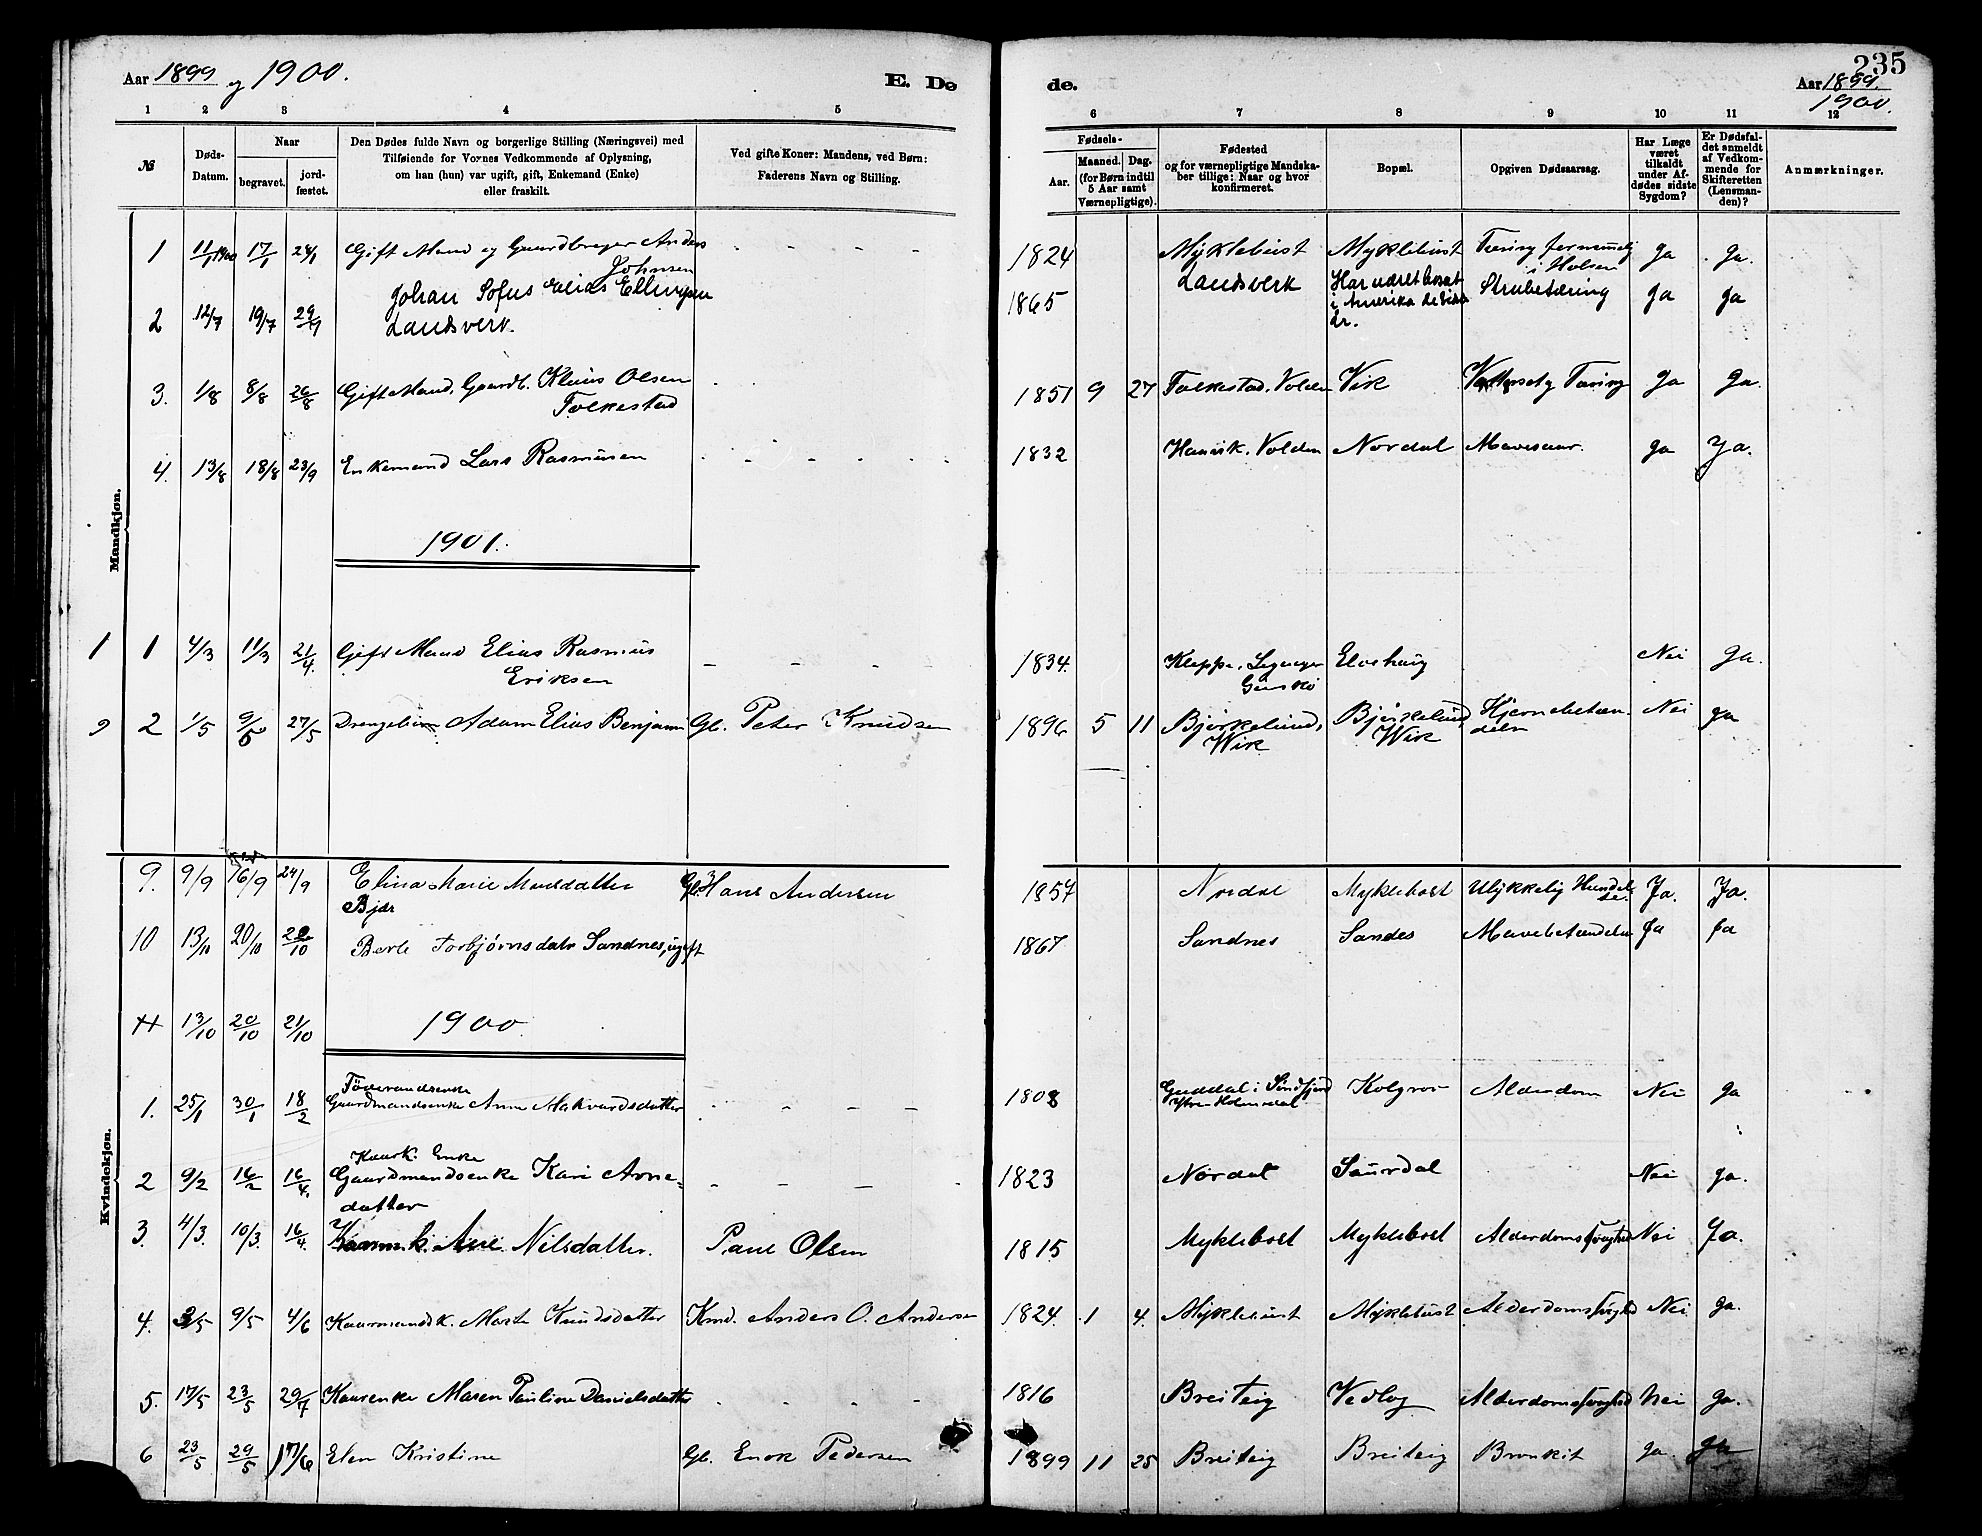 Aar 1899 og 1900.
E. Dø
de.
235
Aar 1899.
1900.
1 2 3 4 5
6 7 8 9 10 11 12
№
Døds-
Datum.
Naar
begravet.
jord-
fæstet.
Den Dødes fulde Navn og borgerlige Stilling (Næringsvei) med
Tilføiende for Voxnes Vedkommende af Oplysning,
om han (hun) var ugift, gift, Enkemand (Enke)
eller fraskilt.
Ved gifte Koner: Mandens, ved Børn:
Faderens Navn og Stilling.
Fødsels-
Aar.
Maaned. Dag.
(for Børn indtil
5 Aar samt
Værnepligtige).
Fødested
og for værnepligtige Mandska-
ber tillige: Naar og hvor
konfirmeret.
Bopæl.
Opgiven Dødsaarsag.
Har Læge
været
tilkaldt
under Af-
dødes sidste
Sygdom?
Er Dødsfal-
det anmeldt
af Vedkom-
mende for
Skifteretten
(Lensman-
den)?
Anmærkninger.
Mandkjøn.
1 11/1 1900 17/1 24/1 Gift Mand og Gaardbruger Anders
Johnsen
1824 Myklebust Myklebust Tæring fornemmelig
i Halsen Ja Ja.
2 12/7 19/7 29/9 Johan Sofus Elias Ellingsen
Landsverk.
1865 Landsverk Har været bosat
i Amerika de sidste
År. Strubetæring Ja Ja
3. 1/8 8/8 26/8 Gift Mand, Gaardb. Klaus Olsen
Folkestad
1851 9 27 Folkestad, Volden Vik Tæring Ja Ja.
4. 13/8 18/8 23/9 Enkemand Lars Rasmusen
1832 Haavik, Volden Nordal Mavesaar. Ja Ja.
1901.
1 1 4/3 11/3 21/4. Gift Mand Elias Rasmus
Eriksen
1834. Kleppe, Nei Ja.
2 2 1/5 9/5 27/5 Drengebarn Adam Elias Benjamin Gb. Peter Knudsen
1896 5 11 Bjørkelund,
Wik Bjørkelund
Wik Hjernebetæn-
delse Nei Ja
Kvindekjøn.
9. 9/9 16/9 24/9 Elina Marie Monsdatter Gb. Hans Andersen
1857 Nordal Myklebost Ulykkelig Hændel-
se. Ja. Ja.
10 13/10 20/10 22/10 Berte Torbjørnsdatr Sandnes, ugift
1867 Sandnes Sandes Mavebetændelse Ja Ja
13/10 20/10 21/10
1900
1. 25/1 30/1 18/2 Føderaadsenke
Gaardmandsenke Anne Makvardsdatter
1808 Guddal i Søndfjord
Ytre Holmedal Kolgrov Alderdom Nei Ja
2 9/2 16/2 16/4. Kaark. Enke
Gaardmandsenke Kari Arne-
datter
1823 Nordal Saurdal Nei Ja.
3. 4/3. 10/3. 16/4 Nilsdatter. Paul Olsen
1815 Myklebost Myklebost Alderdomssvaghed Nei Ja.
4. 3/5 9/5 4/6 Kaarmandsk. Marte Knudsdatter Kmd. Anders O. Andersen
1824 1 4. Myklebust Myklebust Alderdomssvaghed Nei Ja.
5. 17/5 23/5 29/7 Kaarenke Maren Pauline Danielsdatter
1816 Breiteig Vedlog Alderdomssvaghed Nei Ja.
6 23/5 29/5 17/6 Elen Kristine Gb. Enok Pedersen
1899 11 25 Breiteig Breiteig Bronkit Ja. Ja